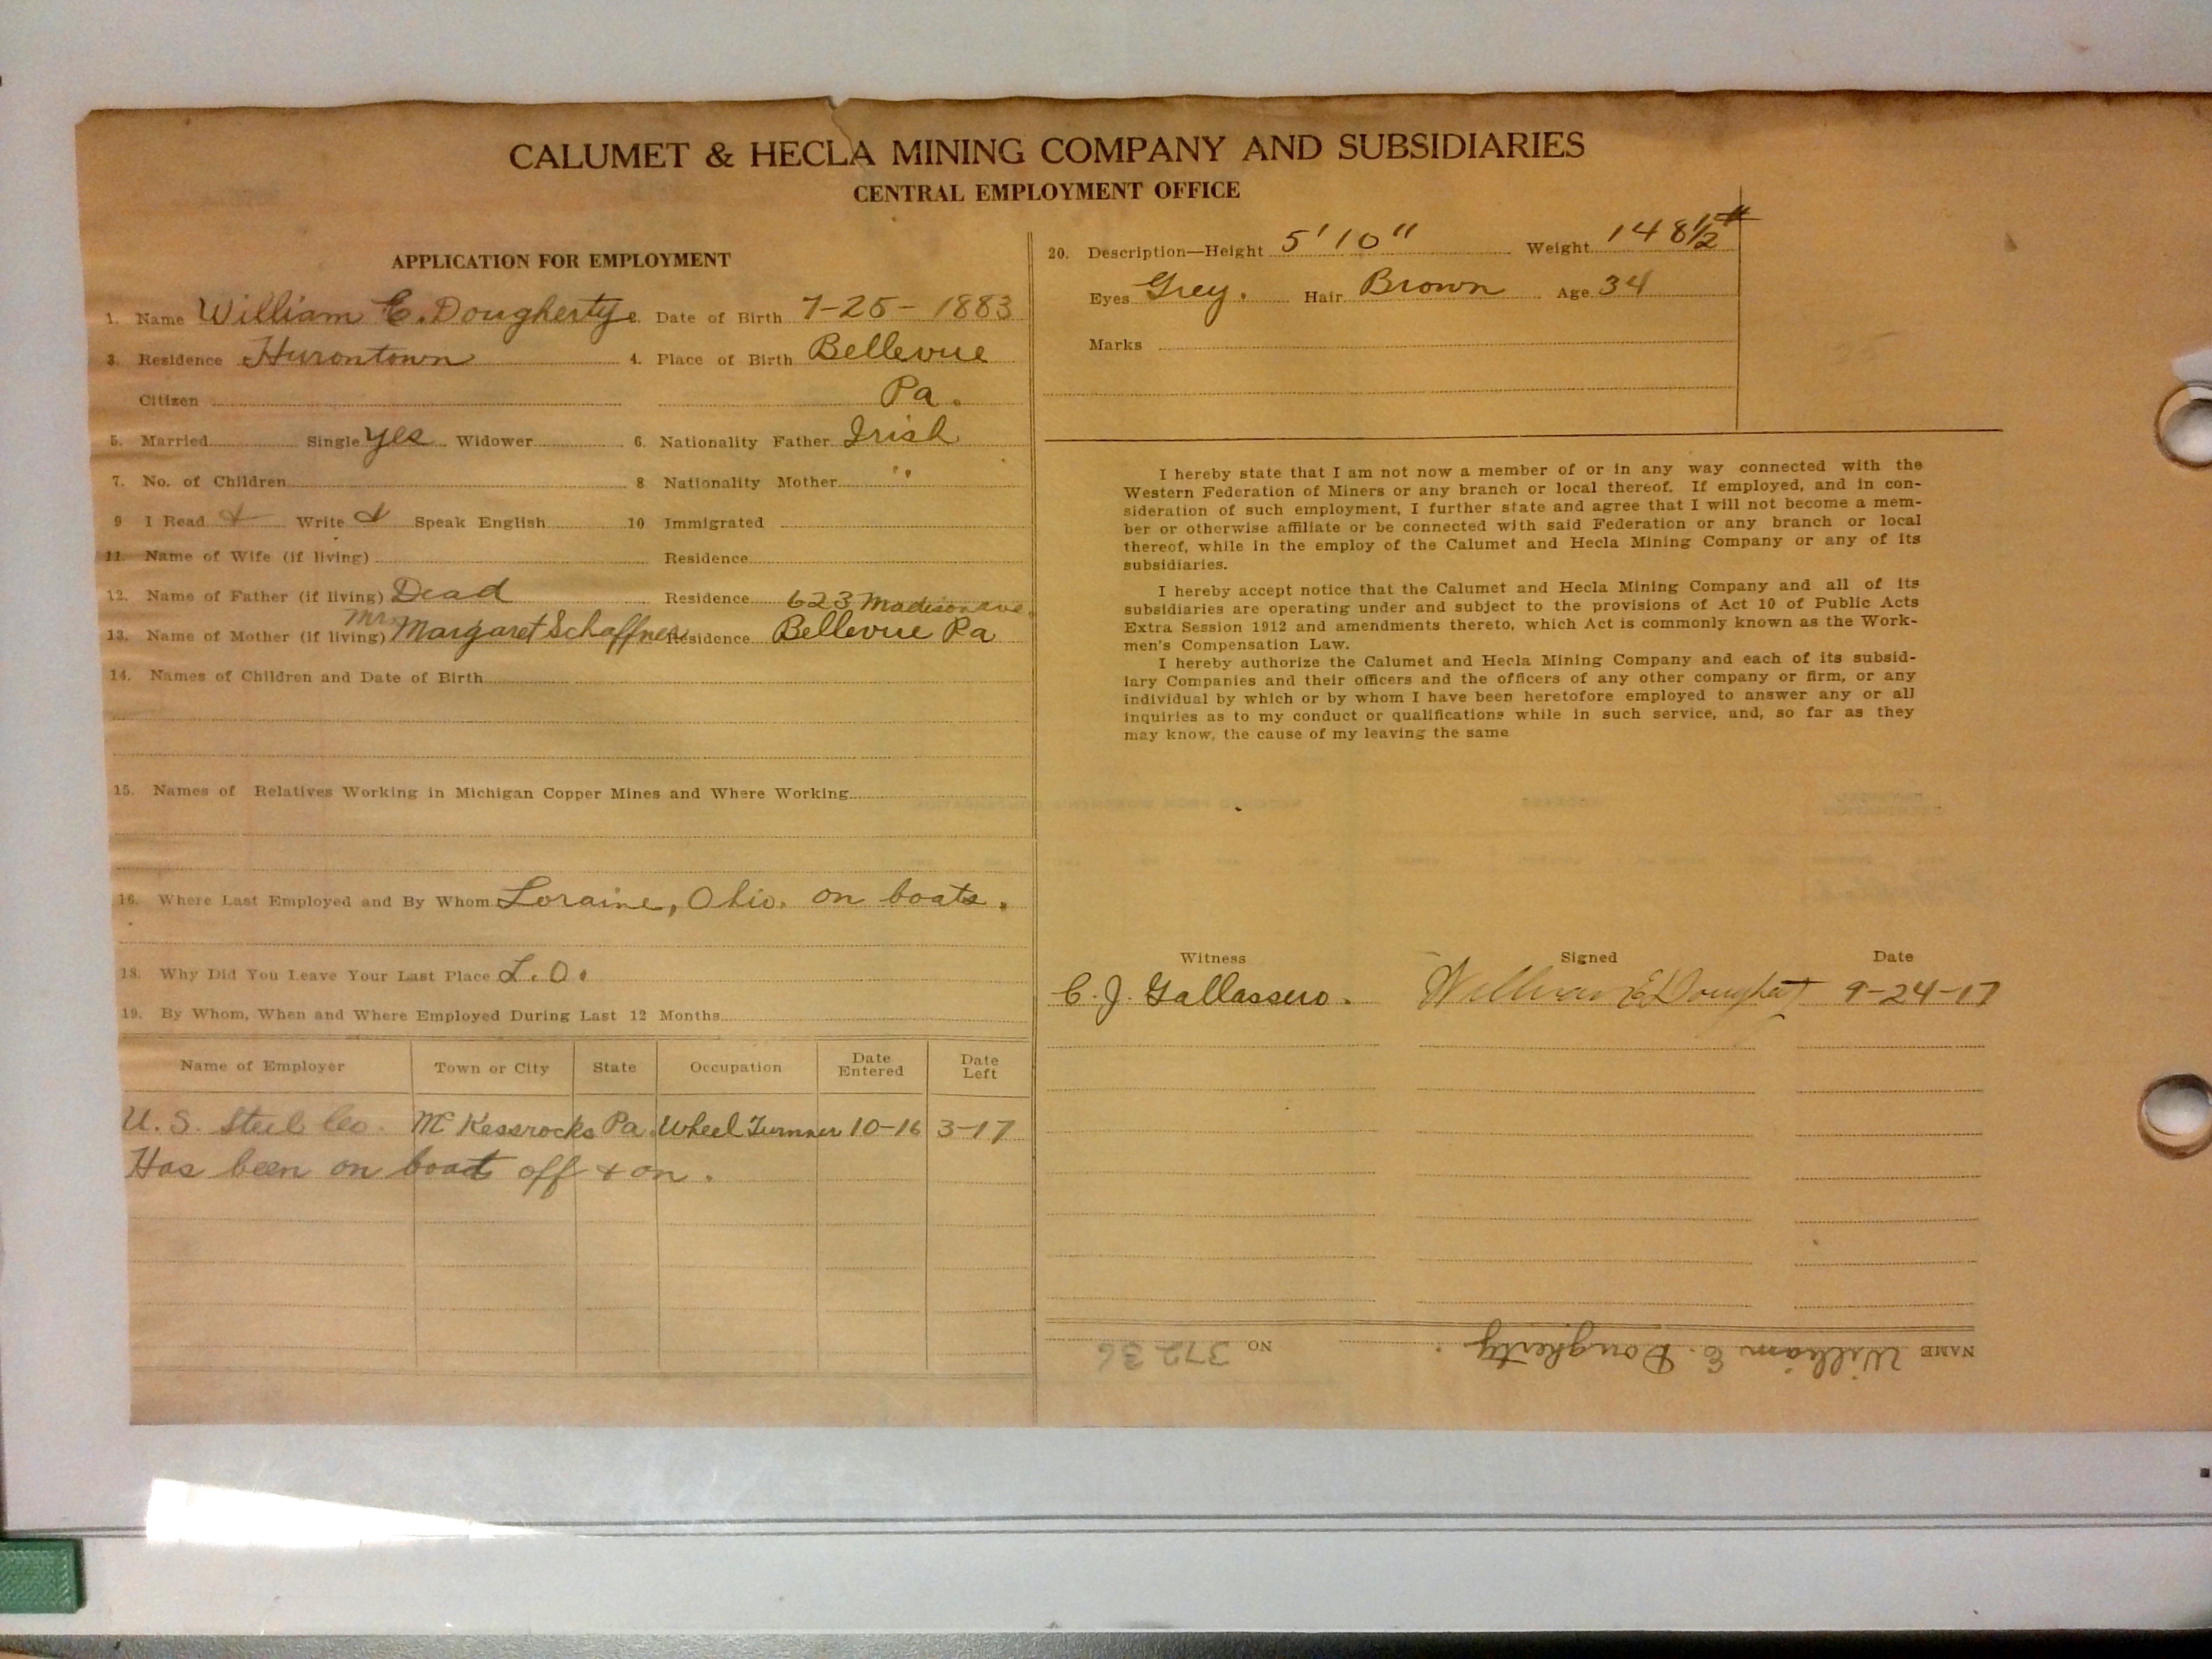 CALUMET & HECLA MINING COMPANY AND SUBSIDIARIES
CENTRAL EMPLOYMENT OFFICE
APPLICATION FOR EMPLOYMENT
1. Name William E. Dougherty 2. Date of Birth 7-25-1883
3. Residence Hurontown 4. Place of Birth Bellevue
Citizen Pa.
5. Married Single yes Widower 6. Nationality Father Irish
7. No. of Children 8 Nationality Mother "
9 I Read & Write & Speak English 10 Immigrated
11. Name of Wife (if living) Residence
12. Name of Father (if living) Dead Residence 623 Madison ave.
13. Name of Mother (if living) Mrs Margaret Schaffner Residence Bellevue Pa
14. Names of Children and Date of Birth
15. Names of Relatives Working in Michigan Copper Mines and Where Working
16. Where Last Employed and By Whom Loraine, Ohio. on boats.
18. Why Did You Leave Your Last Place L.O.
19. By Whom, When and Where Employed During Last 12 Months
Name of Employer Town or City State Occupation Date Entered Date Left
U. S. Steel Co. McKessrocks Pa. Wheel Turnner 10-16 3-17
Has been on boat off & on.
20. Description—Height 5'10" Weight 148 1/2 #
Eyes Grey. Hair Brown Age 34
Marks
I hereby state that I am not now a member of or in any way connected with the
Western Federation of Miners or any branch or local thereof. If employed, and in con-
sideration of such employment, I further state and agree that I will not become a mem-
ber or otherwise affiliate or be connected with said Federation or any branch or local
thereof, while in the employ of the Calumet and Hecla Mining Company or any of its
subsidiaries.
I hereby accept notice that the Calumet and Hecla Mining Company and all of its
subsidiaries are operating under and subject to the provisions of Act 10 of Public Acts
Extra Session 1912 and amendments thereto, which Act is commonly known as the Work-
men's Compensation Law.
I hereby authorize the Calumet and Hecla Mining Company and each of its subsid-
iary Companies and their officers and the officers of any other company or firm, or any
individual by which or by whom I have been heretofore employed to answer any or all
inquiries as to my conduct or qualifications while in such service, and, so far as they
may know, the cause of my leaving the same
Witness Signed Date
C. J. Gallassero. William E Dougherty 9-24-17
NAME William E. Dougherty. NO 37236